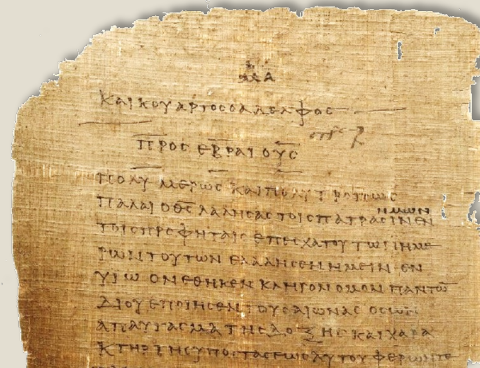 ΜΑ
ΚΑΙ ΚΟΥΑΡΤΟΣ Ο ΑΔΕΛΦΟΣ
ΠΡΟΣ ΕΒΡΑΙΟΥΣ
ΠΟΛΥΜΕΡΩΣ ΚΑΙ ΠΟΛΥΤΡΟΠΩΣ
ΗΜΩΝ
ΠΑΛΑΙ Ο Θ̅Σ̅ ΛΑΛΗΣΑΣ ΤΟΙΣ ΠΑΤΡΑΣΙΝ ΕΝ
ΤΟΙΣ ΠΡΟΦΗΤΑΙΣ ΕΠ ΕΣΧΑΤΟΥ ΤΩΝ ΗΜΕ
ΡΩΝ ΤΟΥΤΩΝ ΕΛΑΛΗΣΕΝ ΗΜΕΙΝ ΕΝ
ΥΙΩ ΟΝ ΕΘΗΚΕΝ ΚΛΗΡΟΝΟΜΟΝ ΠΑΝΤΩ̅
ΔΙ ΟΥ ΕΠΟΙΗΣΕΝ ΤΟΥΣ ΑΙΩΝΑΣ ΟΣ ΩΝ
ΑΠΑΥΓΑΣΜΑ ΤΗΣ ΔΟΞΗΣ ΚΑΙ ΧΑΡΑ
ΚΤΗΡ ΤΗΣ ΥΠΟΣΤΑΣΕΩΣ ΑΥΤΟΥ ΦΕΡΩΝ ΤΕ